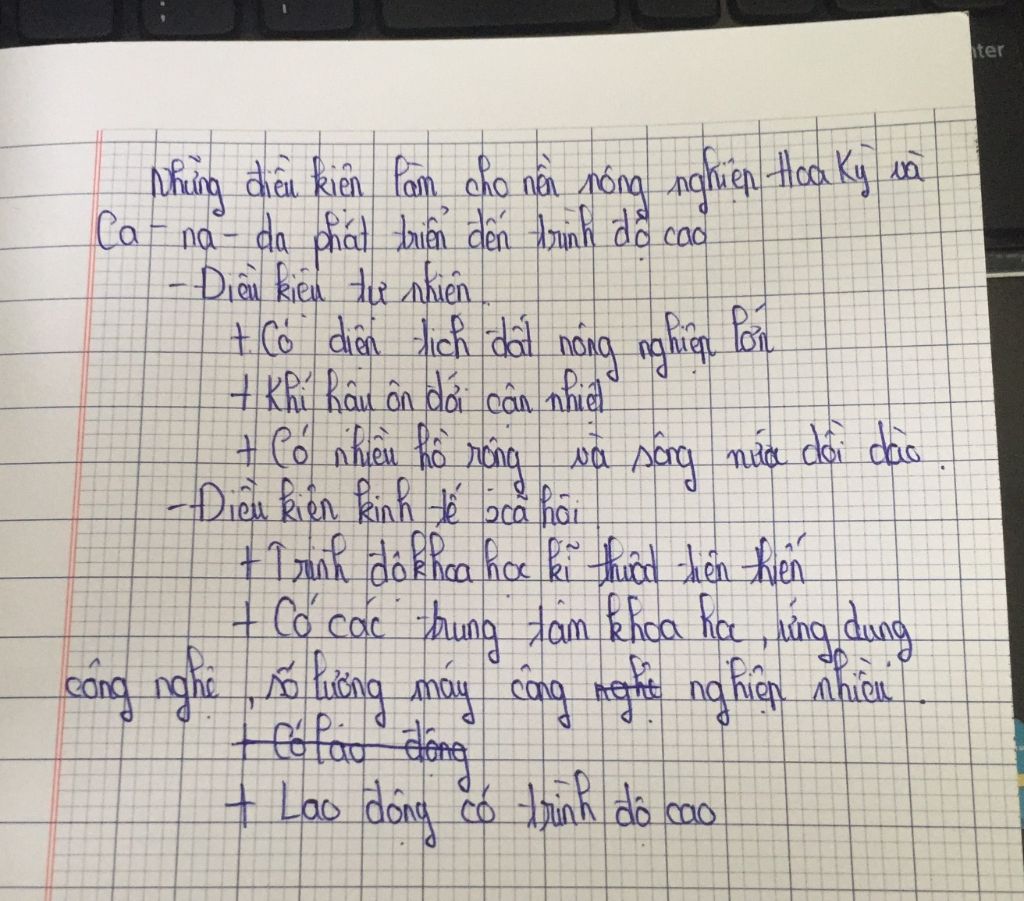 nter
Những điều kiện làm cho nền nông nghiệp Hoa Kỳ và
Ca-na-da phát triển đến trình độ cao
- Điều kiện tự nhiên.
+ Có diện tích đất nông nghiệp lớn
+ Khí hậu ôn đới cận nhiệt
+ Có nhiều hồ rộng và sông nước dồi dào.
- Điều kiện kinh tế xã hội
+ Trình độ khoa học kĩ thuật tiên tiến
+ Có các trung tâm khoa học, ứng dụng
công nghệ, số lượng máy công nghệ nghiệp nhiều.
+ Có lao động
+ Lao động có trình độ cao